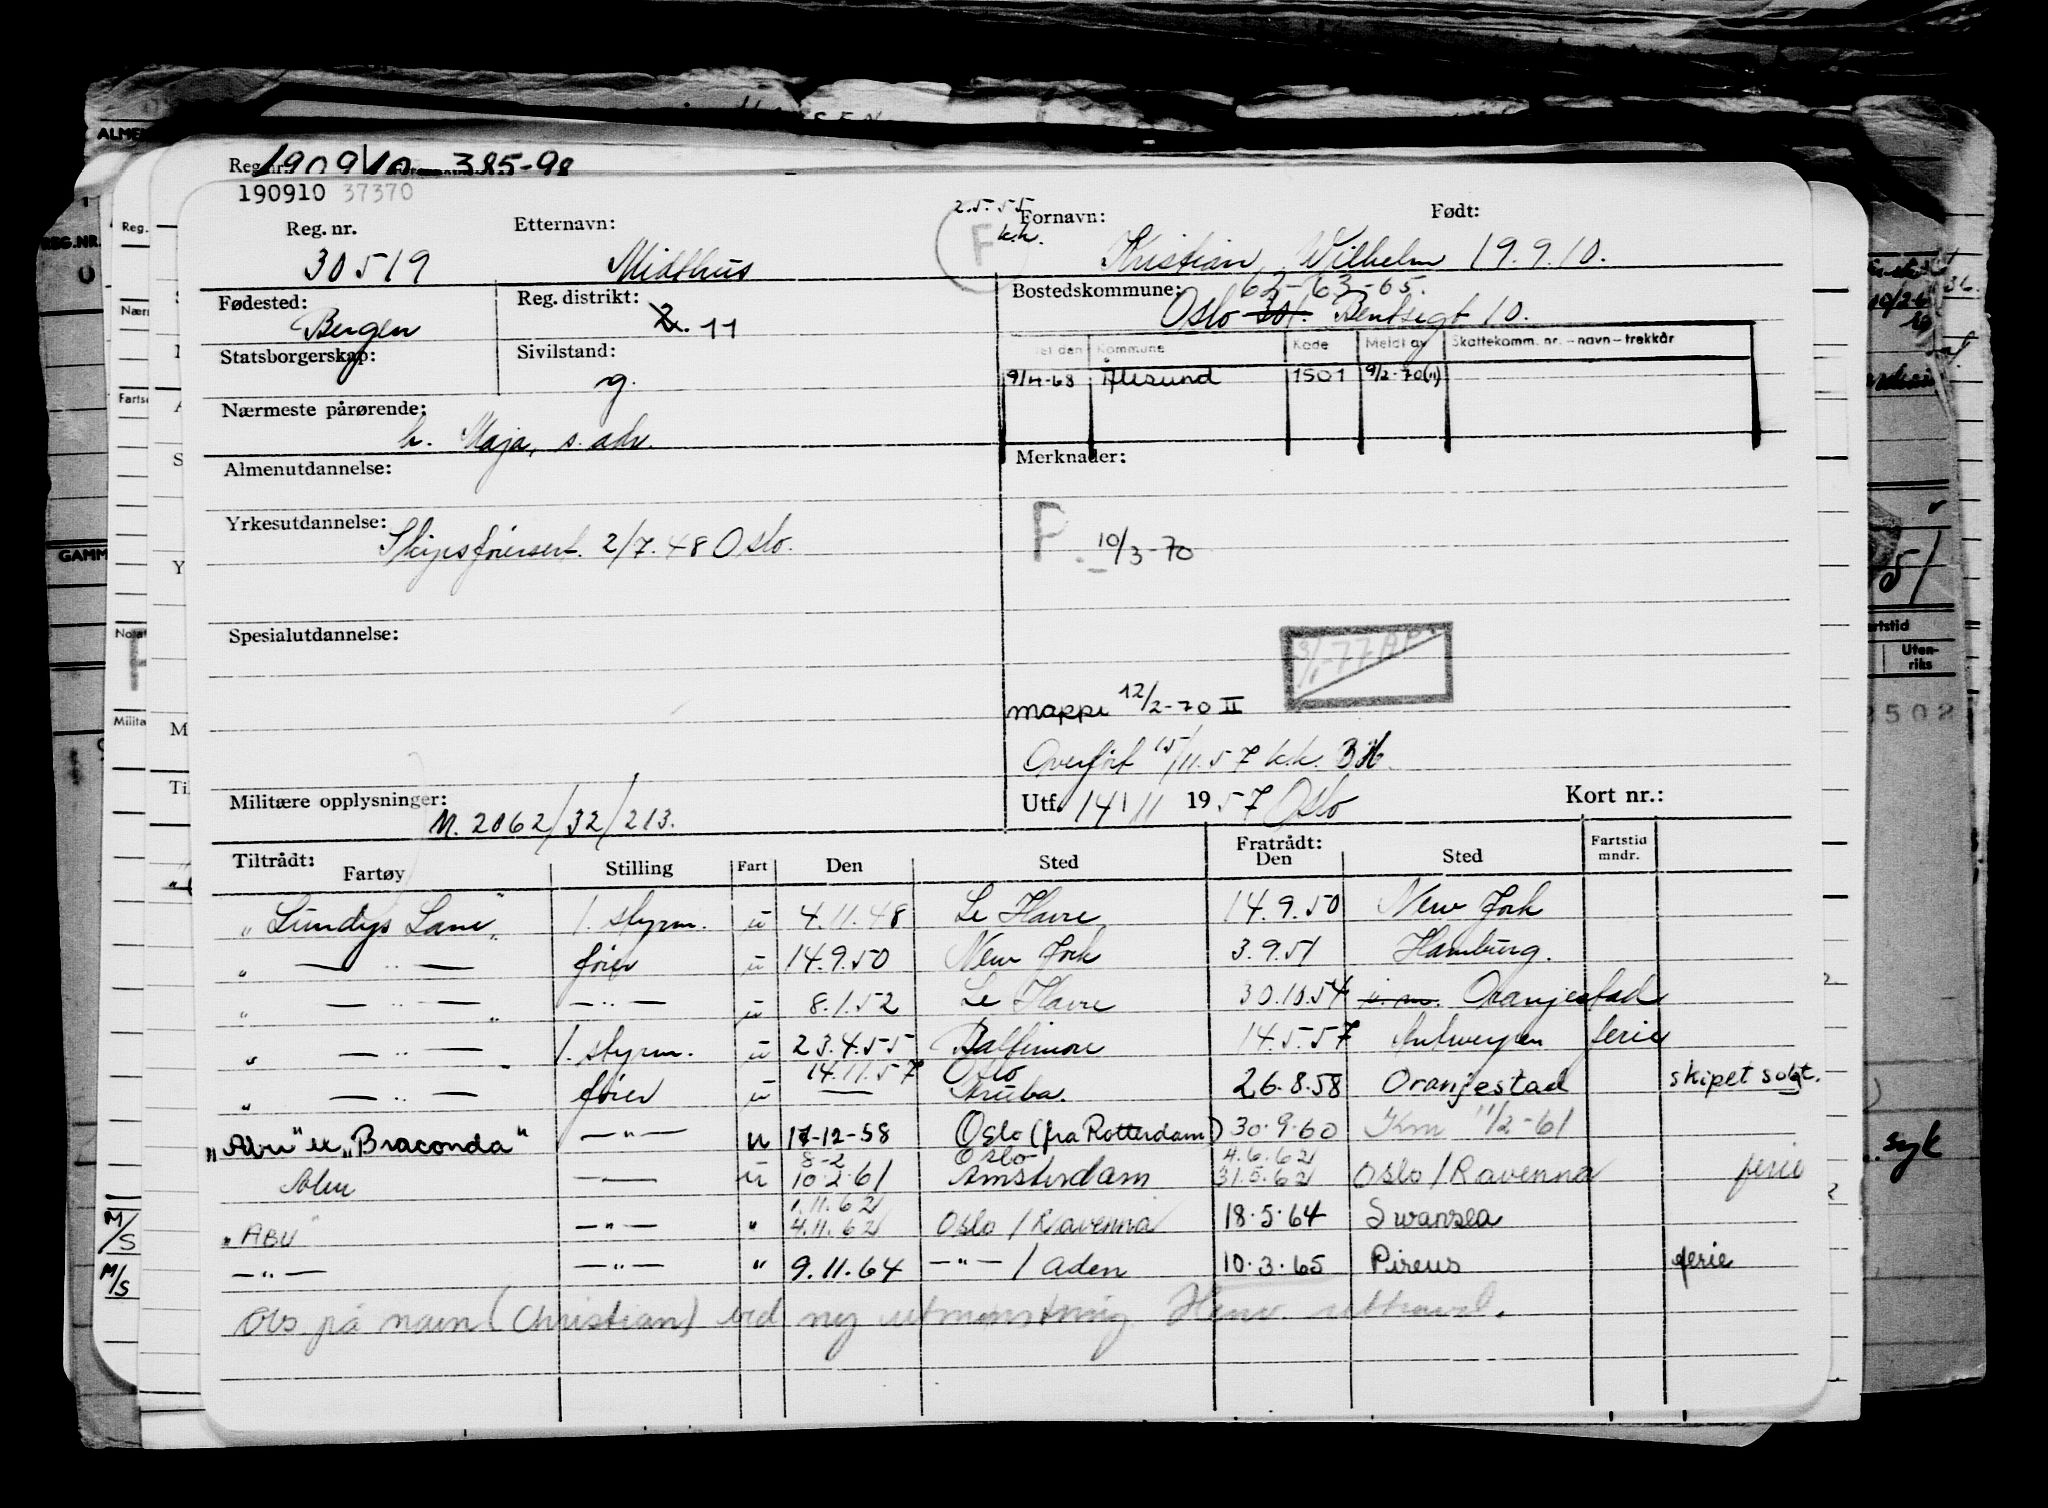 Reg. nr. 190910 385-98
190910 37370
Reg. nr. Etternavn: 2.5.55 k.k. F Fornavn: Født:
30519 Midthus Kristian Wilhelm 19.9.10.
Fødested: Reg. distrikt: Bostedskommune: 62-63-65.
Bergen 2. 11 Oslo 301. Bentsegt 10.
Statsborgerskap: Sivilstand: Kommune Kode Meldt av Skattekomm. nr. - navn - trekkår
g. 9/4-68 Ålesund 1501 9/2-70(11)
Nærmeste pårørende:
h. Maja, s. adr.
Almenutdannelse: Merknader:
Yrkesutdannelse: Skipsførersert. 2/7.48 Oslo. P. 10/3-70
Spesialutdannelse: 3/1-77 AP
mappe 12/2-70 II
Overført 15/11.57 k.k.
Militære opplysninger: Utf. 14/11 1957 Oslo Kort nr.:
M. 2062/32/213.
Tiltrådt: Fratrådt: Fartstid mndr.
Fartøy Stilling Fart Den Sted Den Sted
"Lundys Lane" 1. styrm. u 4.11.48 Le Havre 14.9.50 New York
" — " — fører u 14.9.50 New York 3.9.51 Hamburg.
" — " — " — " — u 8.1.52 Le Havre 30.10.54 u.m. Oranjestad
" — " — " 1. styrm. u 23.4.55 Baltimore 14.5.57 Antwerpen ferie
14.11.57 Oslo
" — " — fører u — Aruba. 26.8.58 Oranjestad skipet solgt.
"Abu" ex "Braconda" — " — u 17-12-58 Oslo (fra Rotterdam) 30.9.60 Km 11/2-61
8-2 Oslo 4.6.62
Abu — " — u 10.2.61 Amsterdam 31.5.62 Oslo / Ravenna ferie
1.11.62
"ABU" — " — " 4.11.62 Oslo / Ravenna 18.5.64 Swansea
— " — — " — " 9.11.64 — " — / Aden 10.3.65 Pireus ferie
Obs på navn (Christian) ved ny utmønstring